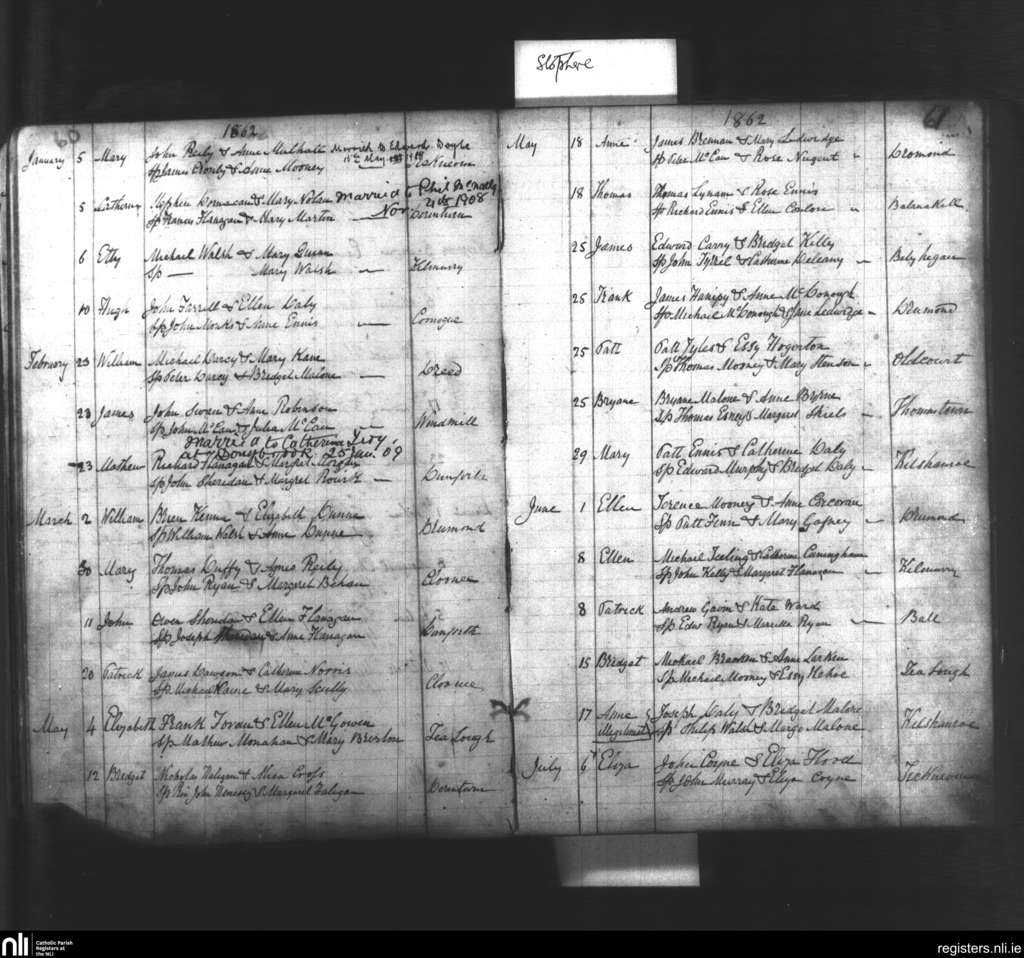 Slip here
60
1862
January 5 Mary John Reily & Anne Mulhall Married to Edward Doyle
Sp James Conly & Anne Mooney 15th May
5 Catherine Stephen & Mary Nolan Married to Phil McNally
Sp Francis Flanagan & Mary Martin Nov 4th 1908
6 Etty Michael Walsh & Mary Quinn
Sp — Mary Walsh — Kilmurry
10 Hugh John Farrell & Ellen Daly
Sp John Monks & Anne Ennis —
February 23 William Michael Darcy & Mary Kane
Sp Peter Darcy & Bridget Malone — Breed
23 James John Swan & Anne Robinson
Sp John McEan & Julia McEan — Windmill
Married to Catherine
at Donybrook 25 Jan. 09
23 Mathew Richard Flanagan & Margret Morgan
Sp John Sheridan & Margret Rourk — Dunforth
March 2 William Bren Kenne & Elizabeth Dunne
Sp William Walsh & Anne Dunne Drumond
30 Mary Thomas Duffy & Agnes Reily
Sp John Ryan & Margaret Behan Clonee
11 John Owen Sheridan & Ellen Flanagan
Sp Joseph & Anne Flanagan Dunforth
20 Patrick James Dawson & Catherine Norris
Sp Michael Kaine & Mary Scully Clonee
May 4 Elizabeth Frank Foran & Ellen McGowen
Sp Mathew Monahan & Mary Breslow Tea Lough
12 Bridget Nicholas Haligan & Miss Cross
Sp Rev John & Margaret Haligan
61
1862
May 18 Anne James Brennan & Mary Ledwidge
Sp Peter McEan & Rose Nugent " Dromond
18 Thomas Thomas Lynam & Rose Ennis
Sp Richard Ennis & Ellen Conlon " Balnakill
25 James Edward Carry & Bridget Kelly
Sp John Tyrel & Catherine Deleany —
25 Frank James Hanify & Anne McDonough
Sp Michael McDonough & Jane Ledwidge " Drumond
25 Patt Patt Tyles & Essy Hogerton
Sp Thomas Mooney & Mary Henson " Oldcourt
25 Bryane Bryane Malone & Anne Byrne
Sp Thomas & Margret Shiels — Thomastown
29 Mary Patt Ennis & Catherine Daly
Sp Edward Murphy & Bridget Daly — Kelshanroe
June 1 Ellen Terence Mooney & Anne Corcoran
Sp Patt Finn & Mary Gafney — Drumond
8 Ellen Michael Teeling & Catherine Cuningham
Sp John Kelly & Margret Flanagan " Kilmurry
8 Patrick Andrew Gavin & Kate Ward
Sp Edw Ryan & Ryan — Ball
15 Bridget Michael Bracken & Anne Larkin
Sp Michael Mooney & Essy Kehoe Tea Lough
17 Anne Joseph Daly & Bridget Malone
illegitimate Sp Philip Walsh & Margt Malone Kelshanroe
July 6 Eliza John Coyne & Eliza Flood
Sp John Murray & Eliza Coyne Tecknevin
nli
Catholic Parish
Registers at
the NLI
registers.nli.ie